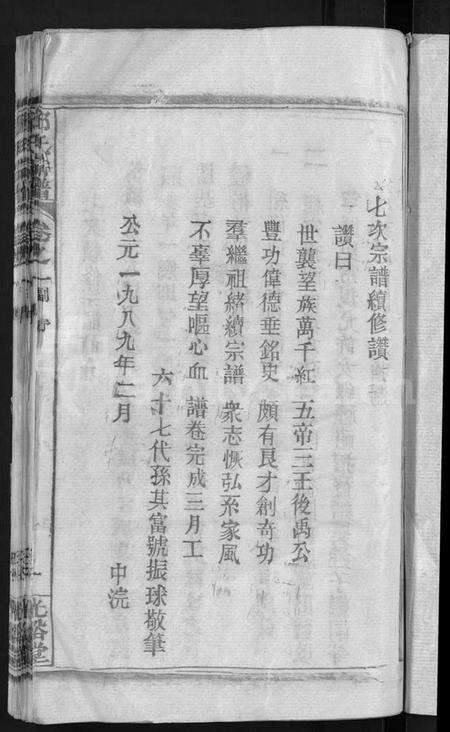 七次宗譜續修讚
讚曰
世襲望族萬千紅 五帝三王後禹公
豐功偉德垂銘史 頗有良才創奇功
羣繼祖緒續宗譜 衆志恢弘系家風
不辜厚望嘔心血 譜卷完成三月工
六十七代孫其富號振球敬筆
公元一九八九年二月 中浣
氏譜
卷之一
光裕堂